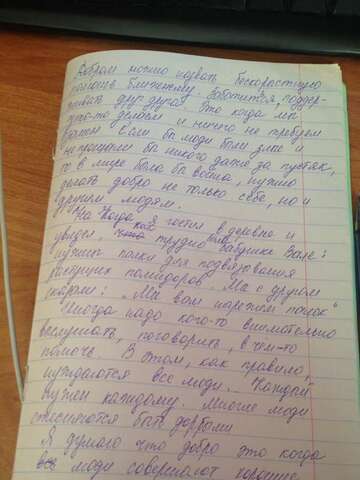 Добром можно назвать бескорыстную
помощь ближнему. Заботится, поддер-
живать друг друга. Это когда мы
что-то делаем и ничего не требуем
взамен. Если бы люди были злые и
не прощали бы никого даже за пустяк,
то в мире была бы война, нужно
делать добро не только себе, но и
другим людям.
Ча Когда я гостил в деревне и
увидел, что как трудно было бабушке Вале:
нужны палки для подвязования
растущих помидоров. Мы с другом
сказали: „Мы вам нарежем палок"
Иногда надо кого-то внимательно
выслушать, поговорить, в чем-то
помочь. В этом, как правило,
нуждаются все люди. Каждый
нужен каждому. Многие люди
стесняются быть добрыми
Я думаю что добро это когда
все люди совершают хорошие